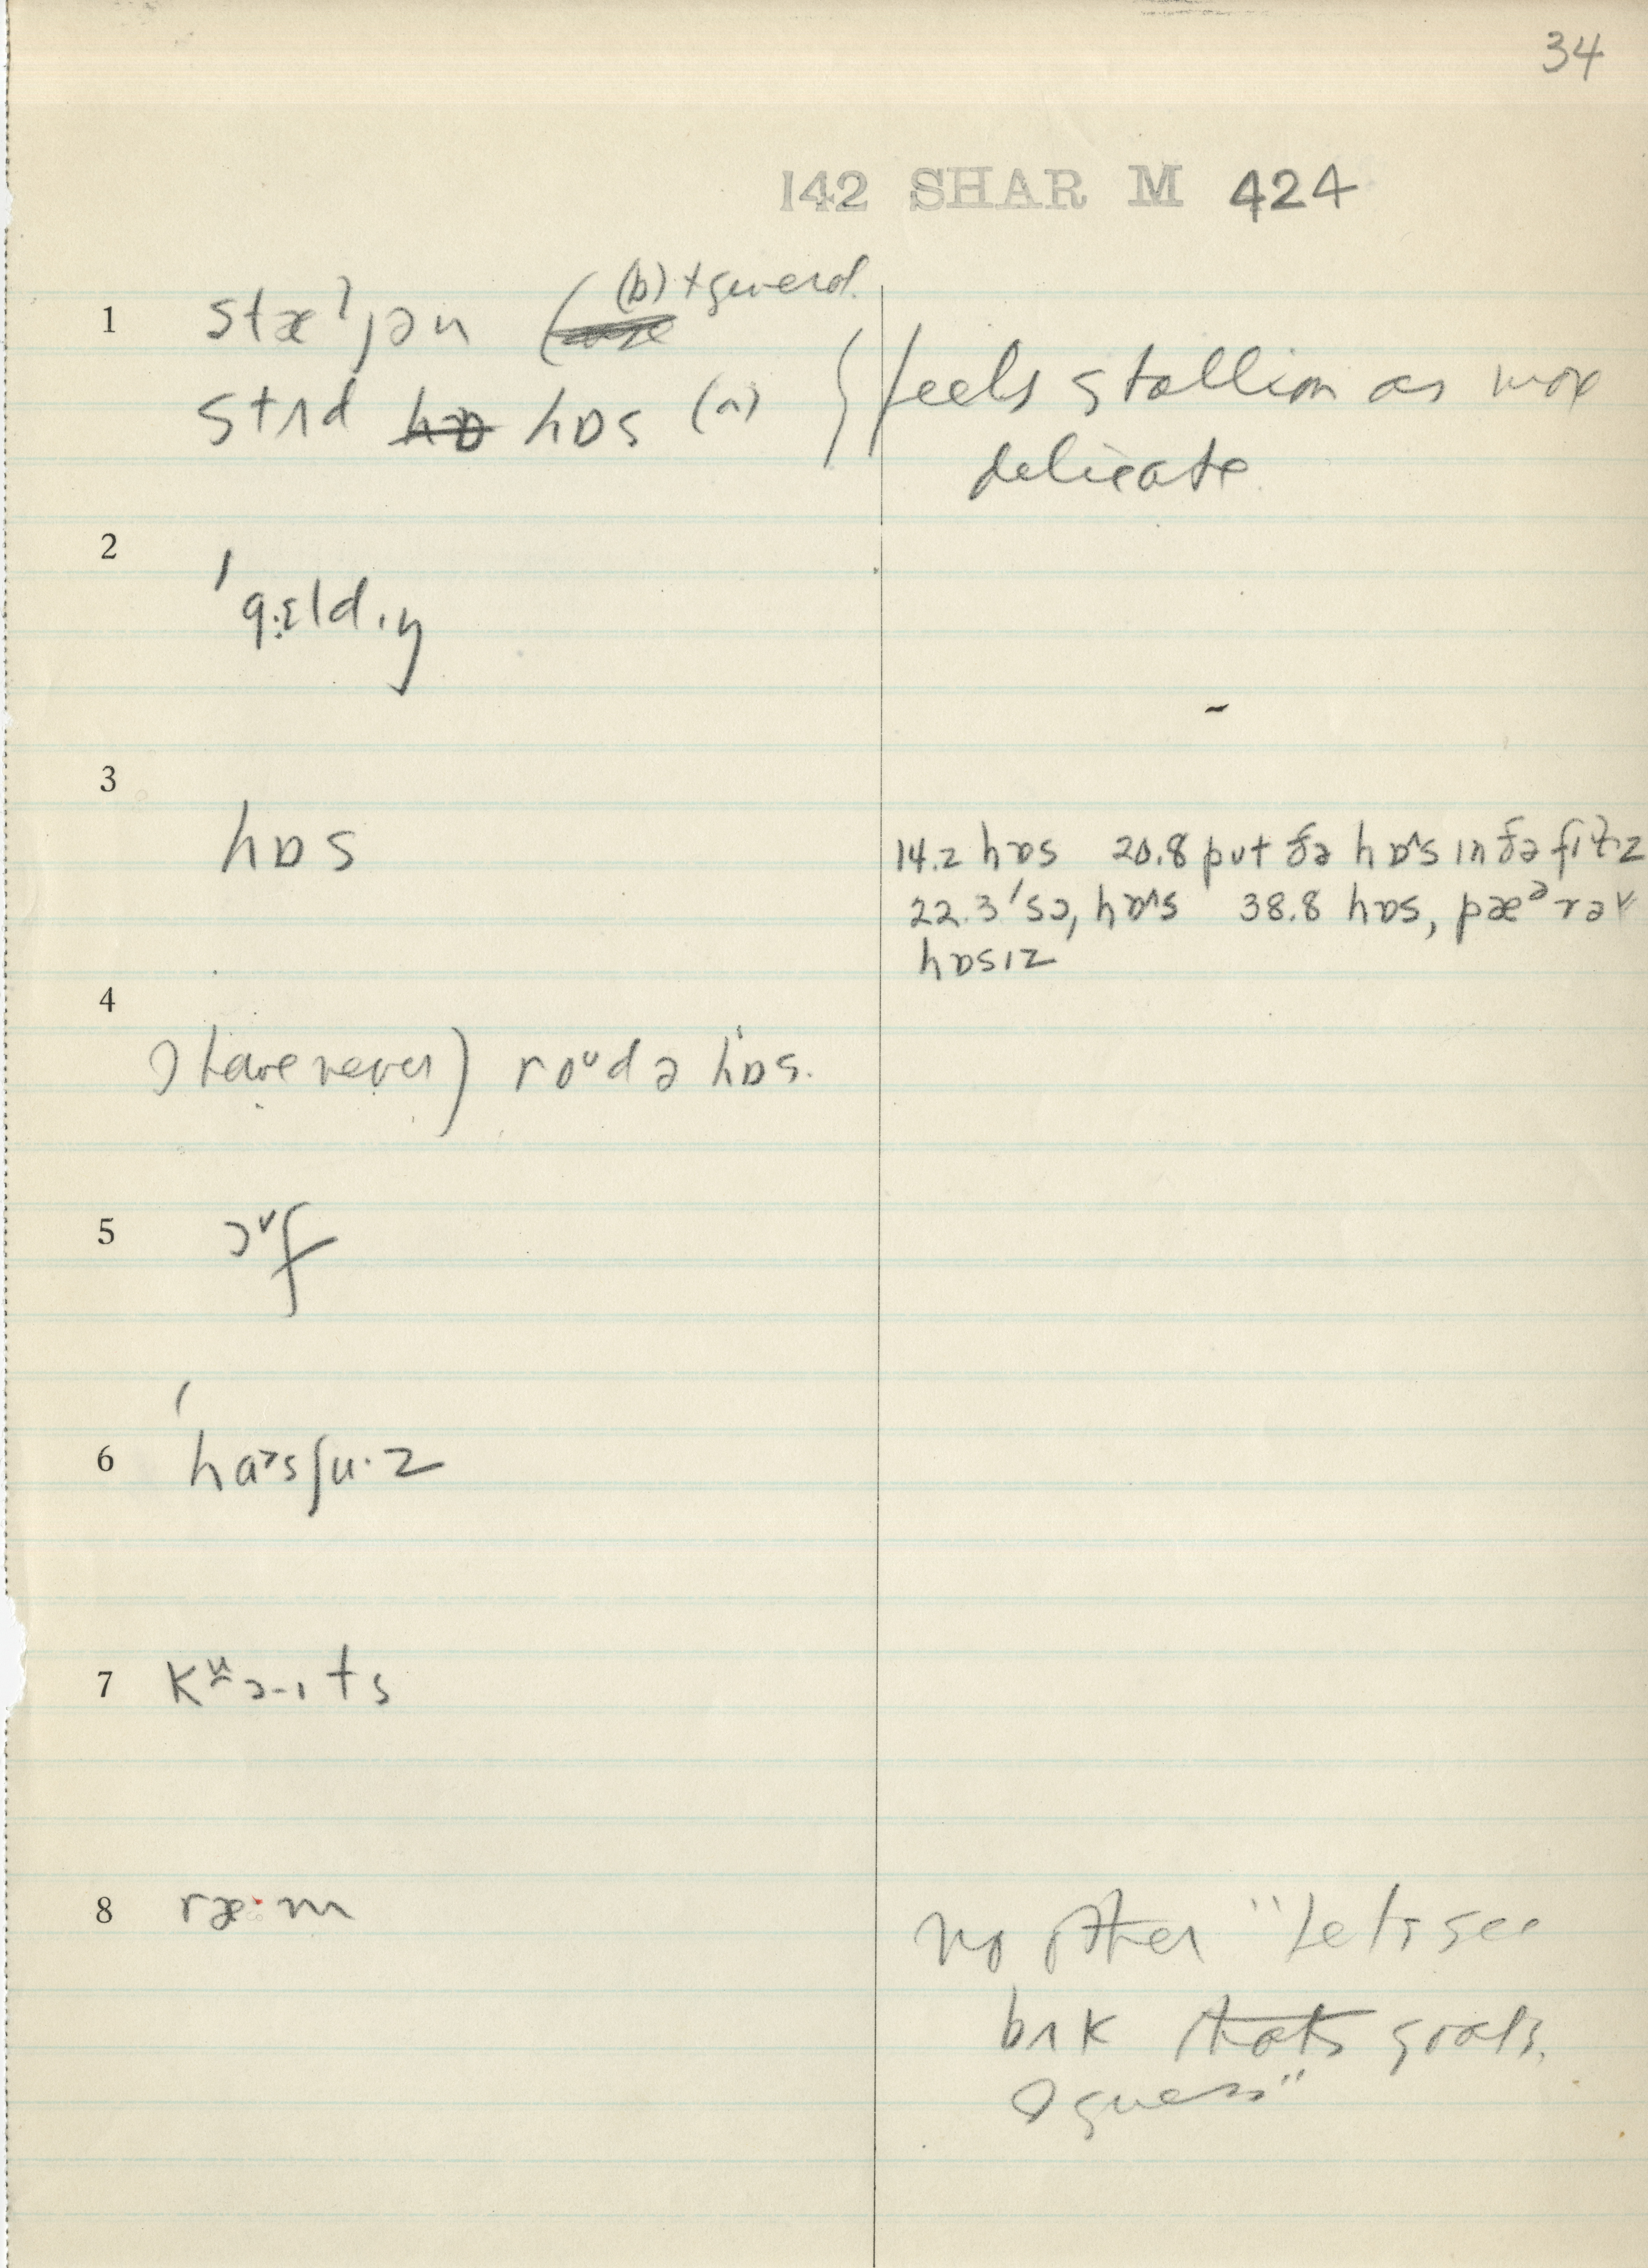 34
142 SHAR M 424
1 stæljən (b) + guard.
stʌd hɒs (a) feels stallion as more
delicate.
2 ˈgɛldɪŋ
3 hɒs
14.2 hɒs 20.8 put ðə hɒˑs in ðə
22.3 ˈsɔ, hɒˑs 38.8 hɒs, pæᵊr əv
hɒsɪz
4 I have never) roᵘd ə hɒs.
5
6 ˈhɔˑsʃuˑz
7
8 ræˑm
no other "Let's see
bʌk that's goats,
I guess"